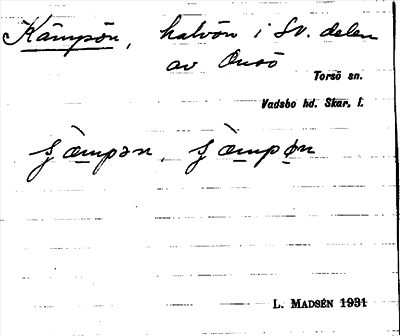 Kämpön, halvön i SV. delen
av Onsö
Torsö sn.
Vadsbo hd. Skar. l.
L. MADSÉN 1931